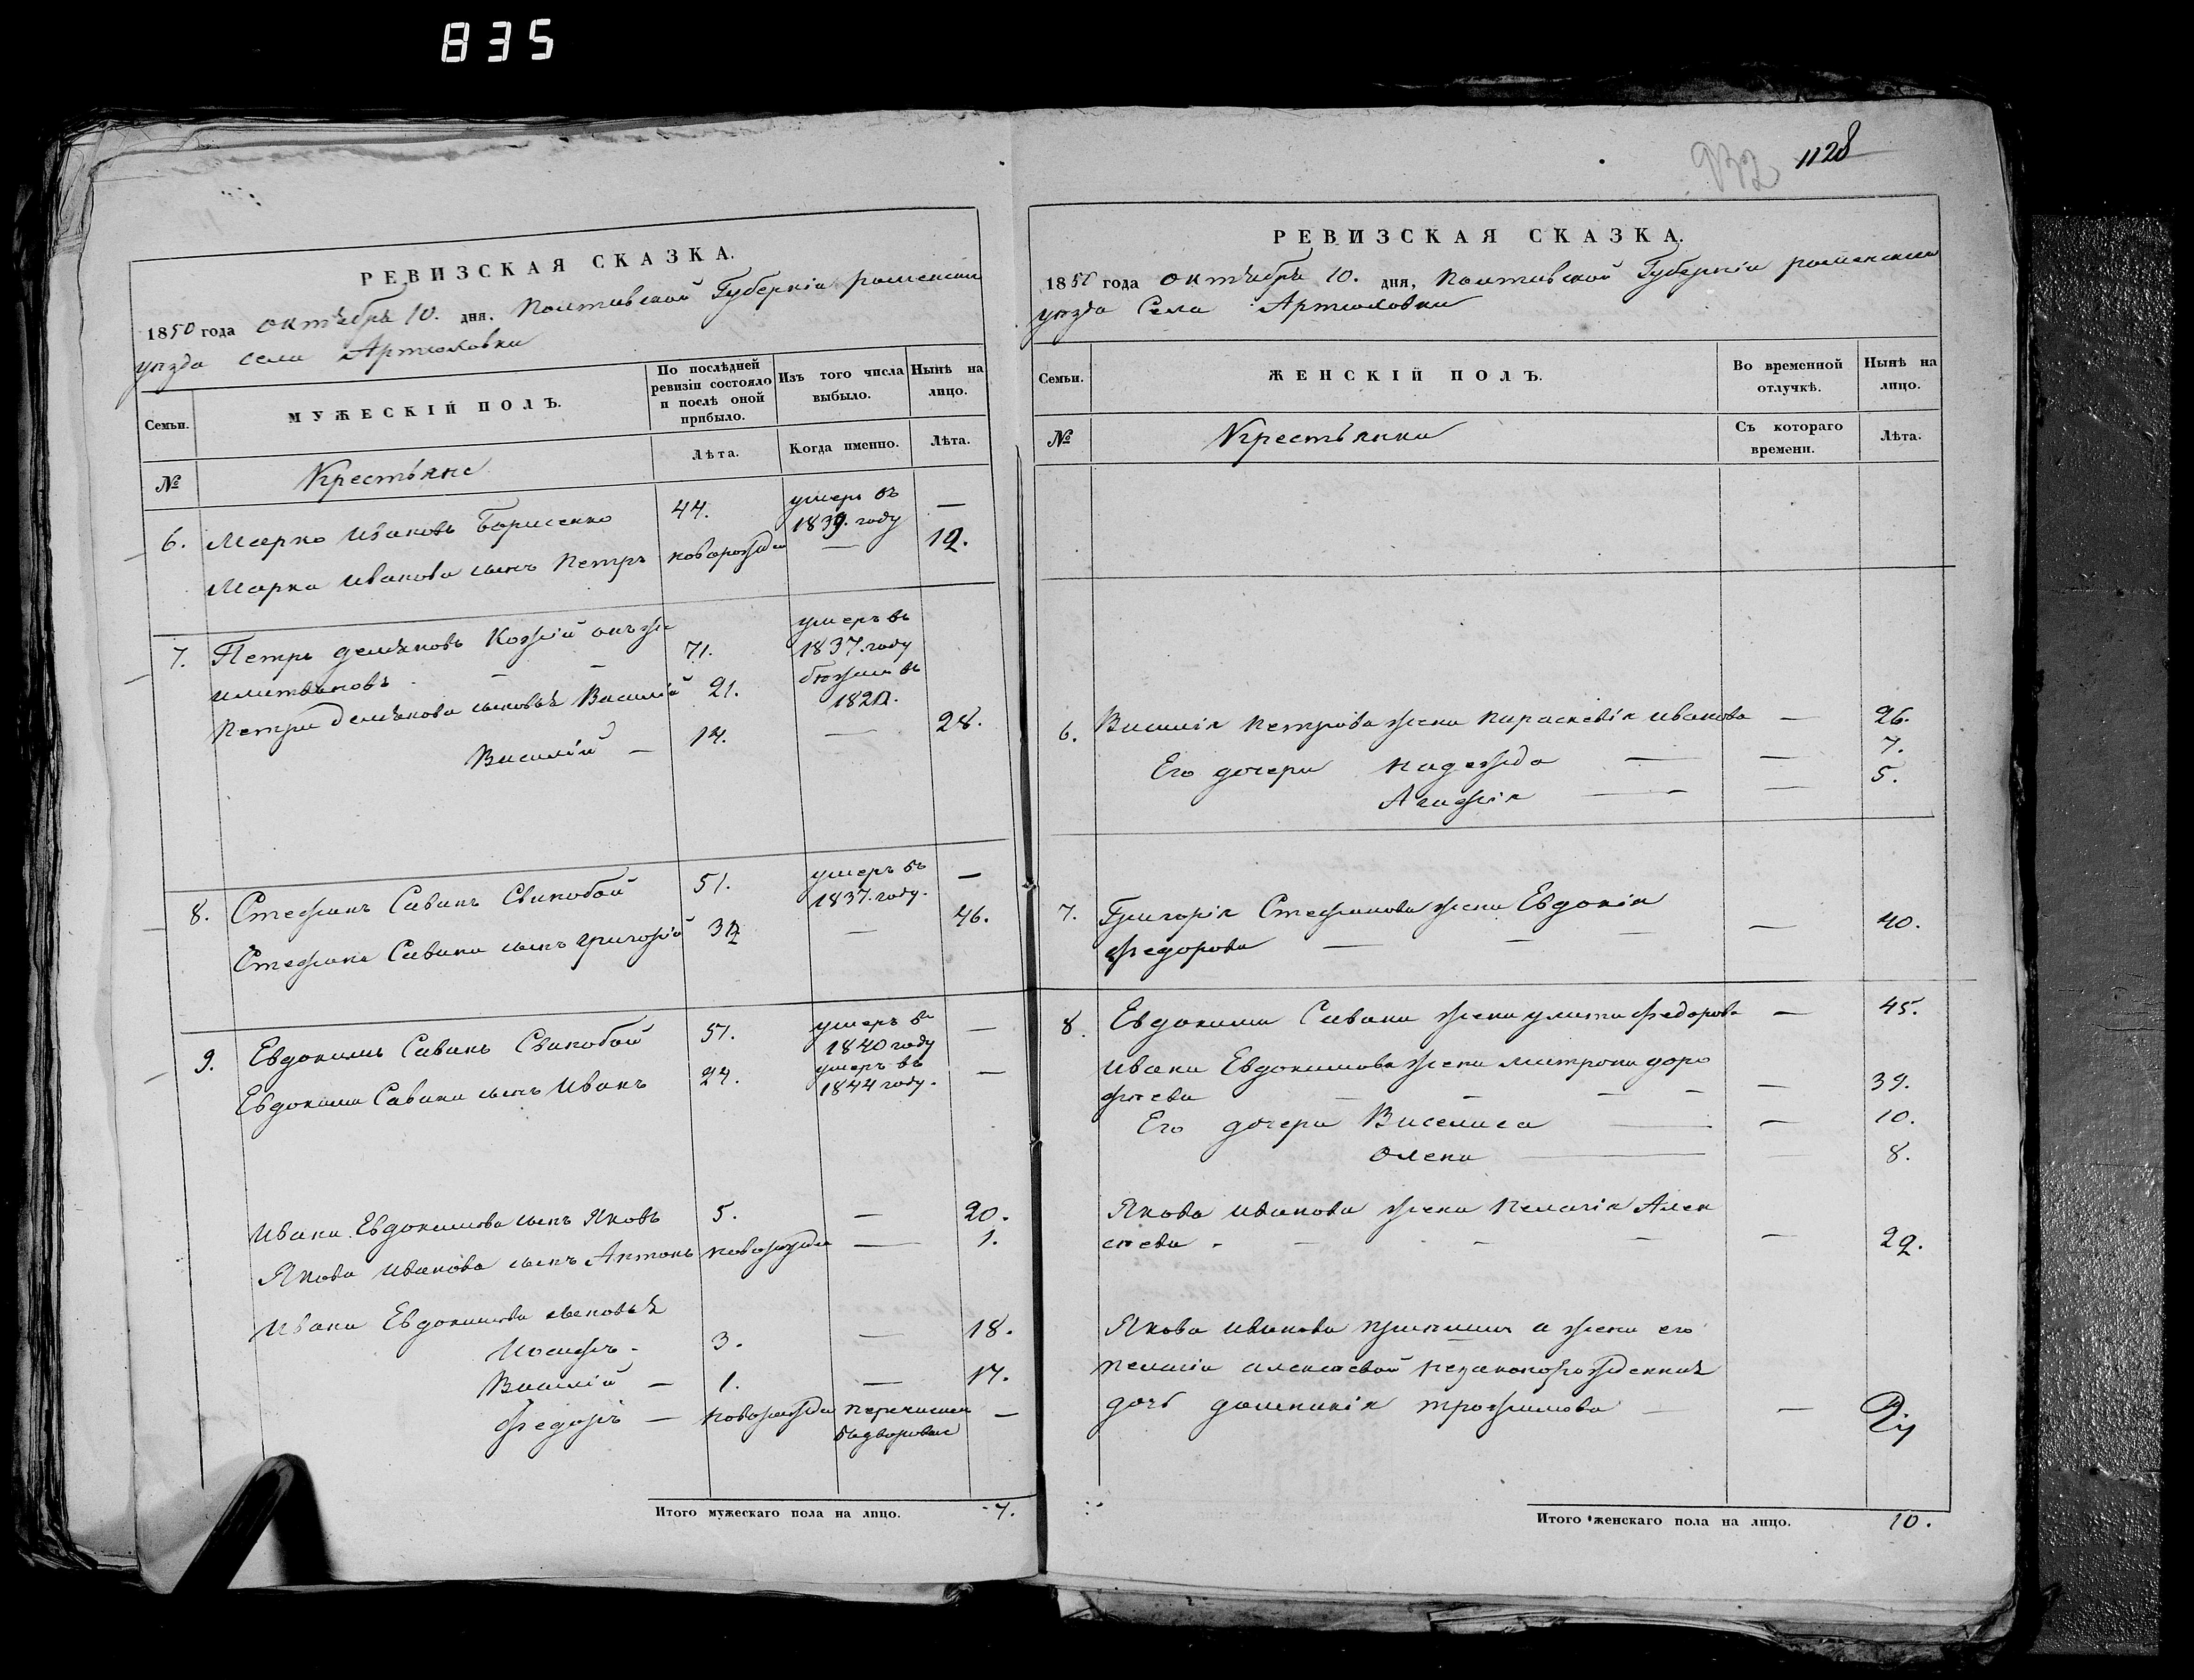 835
РЕВИЗСКАЯ СКАЗКА.
1850 года октября 10. дня, Полтавской Губерніи роменскаго
уезда села Артюховки
Семьи.
МУЖЕСКІЙ ПОЛЪ.
По послѣдней ревизіи состояло и послѣ оной прибыло.
Изъ того числа выбыло.
Нынѣ на лицо.
№
Крестьяне
Лѣта.
Когда именно.
Лѣта.
6. Марко Ивановъ Борисенко 44. умеръ въ 1839. году —
Марка Иванова сынъ Петръ новорожде — 12.
7. Петръ демяновъ Кожій онъже
илитвиновъ — — 71. умеръ въ 1837. году
Петра Демянова сыновья Василій 21. бежалъ въ
Василій — 14. — 28.
8. Стефанъ Савинъ Свинобой 51. умеръ въ 1837. году. —
Стефана Савина сынъ григорій — 46.
9. Евдокимъ Савинъ Свинобой 57. умеръ въ 1840 году —
Евдокима Савина сынъ Иванъ 24. умеръ въ 1844 году. —
Ивана Евдокимова сынъ Яковъ 5. — 20.
Якова Иванова сынъ Антонъ новорожде — 1.
Ивана Евдокимова сыновья
Иосифъ - 3. — 18.
Василій — 1. — 17.
Федоръ — новорожде перечисленъ въ дворовые —
Итого мужескаго пола на лицо. 7.
932 1128
РЕВИЗСКАЯ СКАЗКА.
1850 года октября 10. дня, Полтавской Губерніи роменскаго
уезда Села Артюховки
Семьи.
ЖЕНСКІЙ ПОЛЪ.
Во временной отлучкѣ.
Нынѣ на лицо.
№
Крестьянки
Съ котораго времени.
Лѣта.
6. Василія Петрова жена Параскевія Иванова — 26.
Его дочери Надежда — — 7.
Агафія — — 5.
7. Григорія Стефанова жена Евдокія
Федорова — — — — 40.
8. Евдокима Савина жена улита Федорова — 45.
Ивана Евдокимова жена матрона доро
феева — — — — — 39.
Его дочери Василиса — — 10.
Олена — — 8.
Якова Иванова жена Пелагія Алек
сеева - — - — — — 22.
Якова Иванова а жены его
пелагіи алексеевой незаконорожденная
дочь домникія трофимова — —
Итого женскаго пола на лицо. 10.